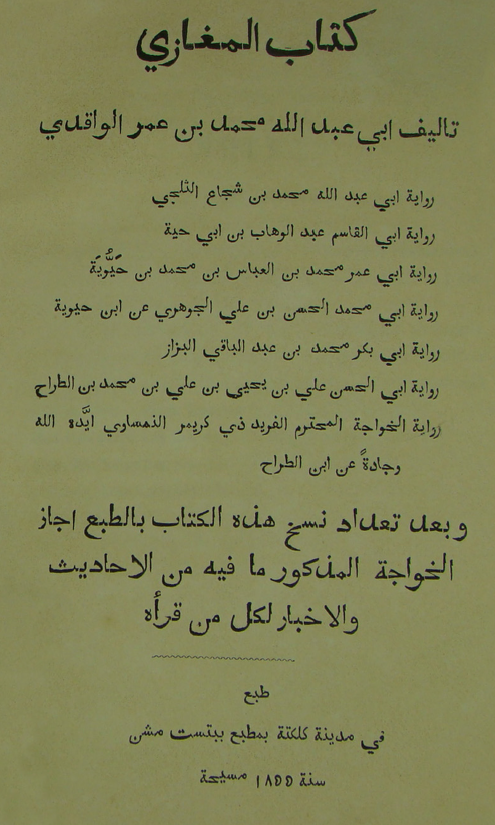 كتاب المغازي
تاليف ابي عبد الله محمد بن عمر الواقدي
رواية ابي عبد الله محمد بن شجاع الثلجي
رواية ابي القاسم عبد الوهاب بن ابي حية
رواية ابي عمر محمد بن العباس بن محمد بن حَيُّويَة
رواية ابي محمد الحسن بن علي الجوهري عن ابن حيوية
رواية ابي بكر محمد بن عبد الباقي البزاز
رواية ابي الحسن علي بن يحيى بن علي بن محمد بن الطراح
رواية الخواجة المحترم الفريد ذي كريمر النمساوي ايَّده الله
وجادةً عن ابن الطراح
وبعد تعداد نسخ هذه الكتاب بالطبع اجاز
الخواجة المذكور ما فيه من الاحاديث
والاخبار لكل من قرأه
طبع
في مدينة كلكتة بمطبع ببتست مشن
سنة ١٨٥٥ مسيحية